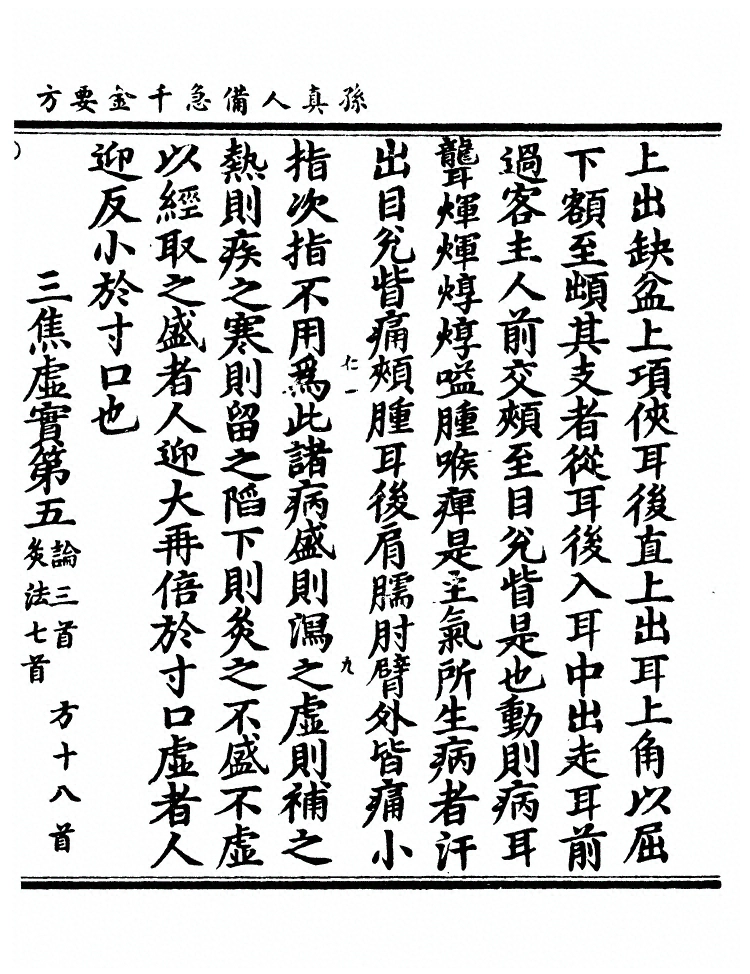 孫真人備急千金要方
上出缺盆上項俠耳後直上出耳上角以屈
下額至䪼其支者從耳後入耳中出走耳前
過客主人前交頰至目兊眥是也動則病耳
聾煇煇焞焞嗌腫喉痺是主氣所生病者汗
出目兊眥痛頰腫耳後肩臑肘臂外皆痛小
仁一
九
指次指不用爲此諸病盛則瀉之虛則補之
熱則疾之寒則留之陷下則灸之不盛不虛
以經取之盛者人迎大再倍於寸口虛者人
迎反小於寸口也
三焦虛實第五 論三首 方十八首
灸法七首